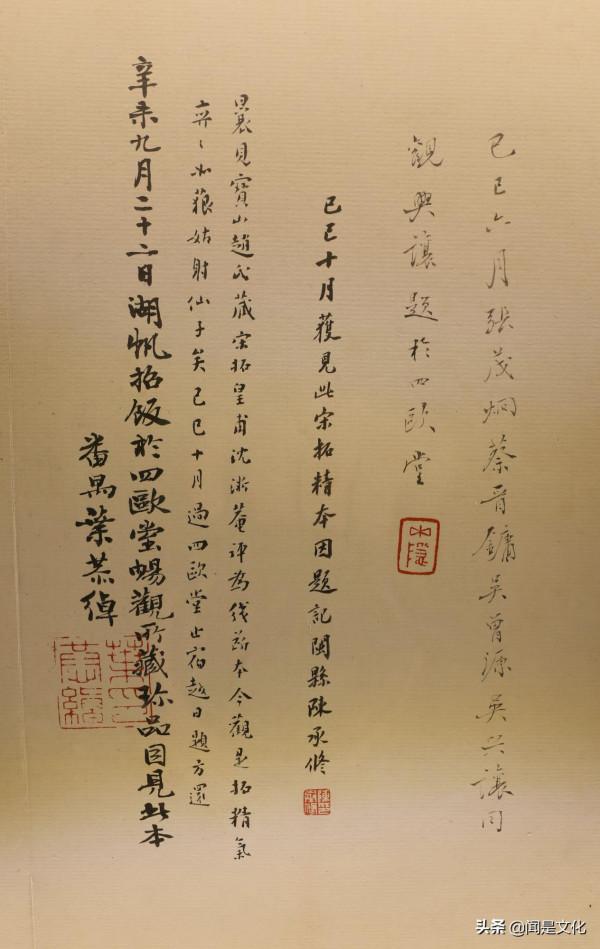 己巳六月張茂炯蔡晋鏞吳曾源吳興讓同
觀興讓題於四歐堂
己巳十月獲見此宋拓精本因題記閩縣陳承修
曩見寶山趙氏藏宋拓皇甫沈淞菴評為线斷本今觀是拓精氣
弈〻如藐姑射仙子矣己巳十月過四歐堂止宿越日題方還
辛未九月二十二日湖帆招飯於四歐堂暢觀所藏珍品因見此本
番禺葉恭綽
头条 @闻是文化